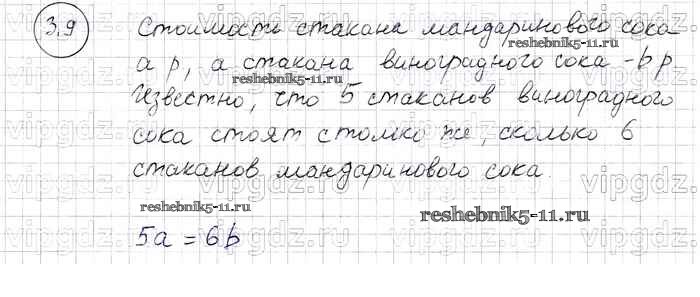 3.9
Стоимость стакана мандаринового сока
а р, а стакана виноградного сока - b р.
Известно, что 5 стаканов виноградного
сока стоят столко же, сколько 6
стаканов мандаринового сока.
5a = 6b
reshebnik5-11.ru
reshebnik5-11.ru
reshebnik5-11.ru
vipgdz.ru